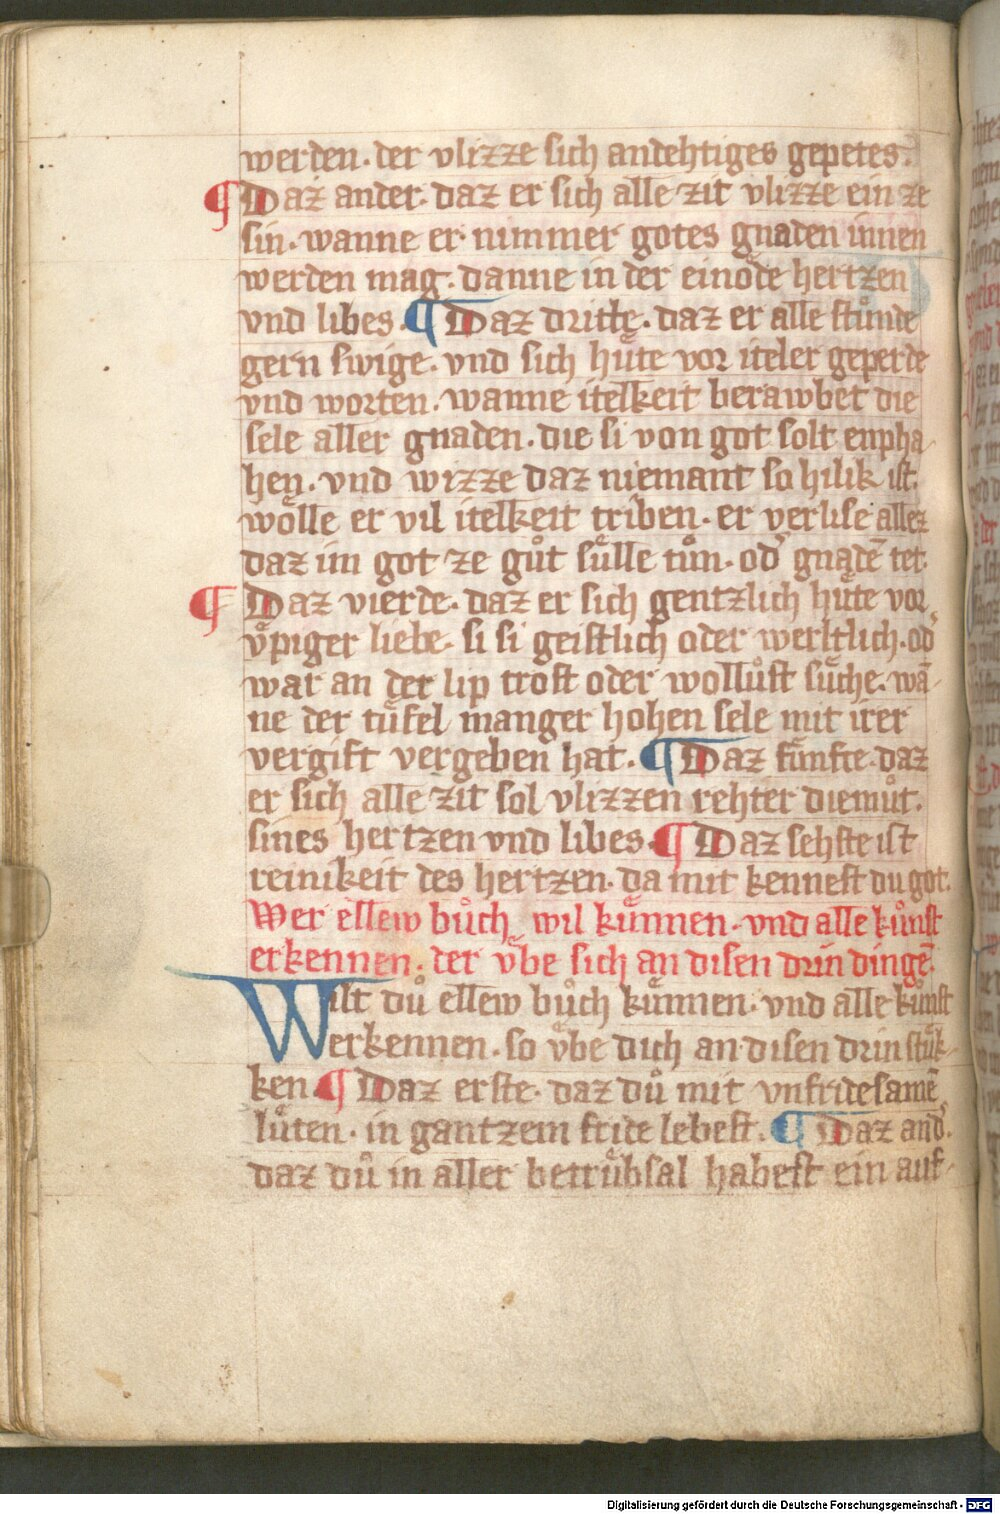 werden · der vlizze sich andehtiges gepetes ·
¶ Daz ander · daz er sich alle zit vlizze ein ze
sin · wanne er nimmer gotes gnaden innen
werden mag · danne in der einöde hertzen
vnd libes · ¶ Daz dritte · daz er alle stunde
gern swige · vnd sich huͤte vor iteler geperde
vnd worten · wanne itelkeit berawbet die
sele aller gnaden · die si von got solt enpha
hen · vnd wizze daz niemant so hilik ist ·
woͤlle er vil itelkeit triben · er verlise allez
daz im got ze guͦt suͤlle tuͦn · od' gnadē tet ·
¶ Daz vierde · daz er sich gentzlich huͤte vor
vͤpiger liebe · si si geistlich oder werltlich · od'
war an der lip trost oder wolluͦst suͤche · wā-
ne der tuͤfel manger hohen sele mit irer
vergift vergeben hat · ¶ Daz fuͤnfte · daz
er sich alle zit sol vlizzen rehter diemuͦt ·
sines hertzen vnd libes · ¶ Daz sehste ist
reinikeit des hertzen · da mit kennest du got ·
Wer ellew buͦch wil kuͤnnen · vnd alle kuͦnst
erkennen · der vͤbe sich an disen drin dingē ·
Wilt duͦ ellew buͦch kuͤnnen · vnd alle kuͦnst
erkennen · so vͤbe dich an disen drin stuͤk-
ken ¶ Daz erste · daz duͦ mit vnfridesamē
luͤten · in gantzem fride lebest · ¶ Daz and' ·
daz duͦ in aller betruͤbsal habest ein auf-
Digitalisierung gefördert durch die Deutsche Forschungsgemeinschaft - DFG